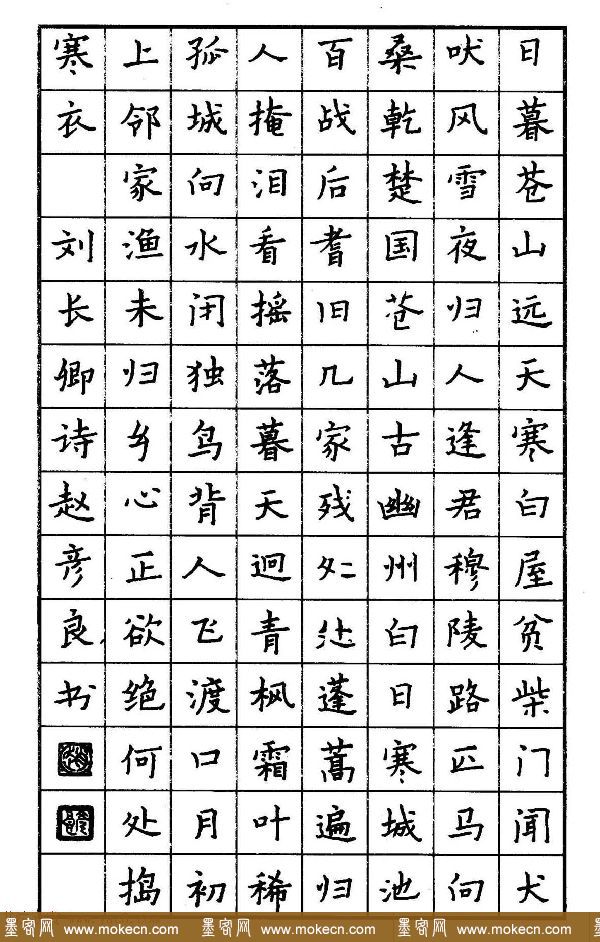 日暮苍山远天寒白屋贫柴门闻犬
吠风雪夜归人逢君穆陵路匹马向
桑乾楚国苍山古幽州白日寒城池
百战后耆旧几家残处处蓬蒿遍归
人掩泪看摇落暮天迥青枫霜叶稀
孤城向水闭独鸟背人飞渡口月初
上邻家渔未归乡心正欲绝何处捣
寒衣 刘长卿诗赵彦良书
墨客网 www.mokecn.com 墨客网 www.mokecn.com 墨客网 www.mokecn.com